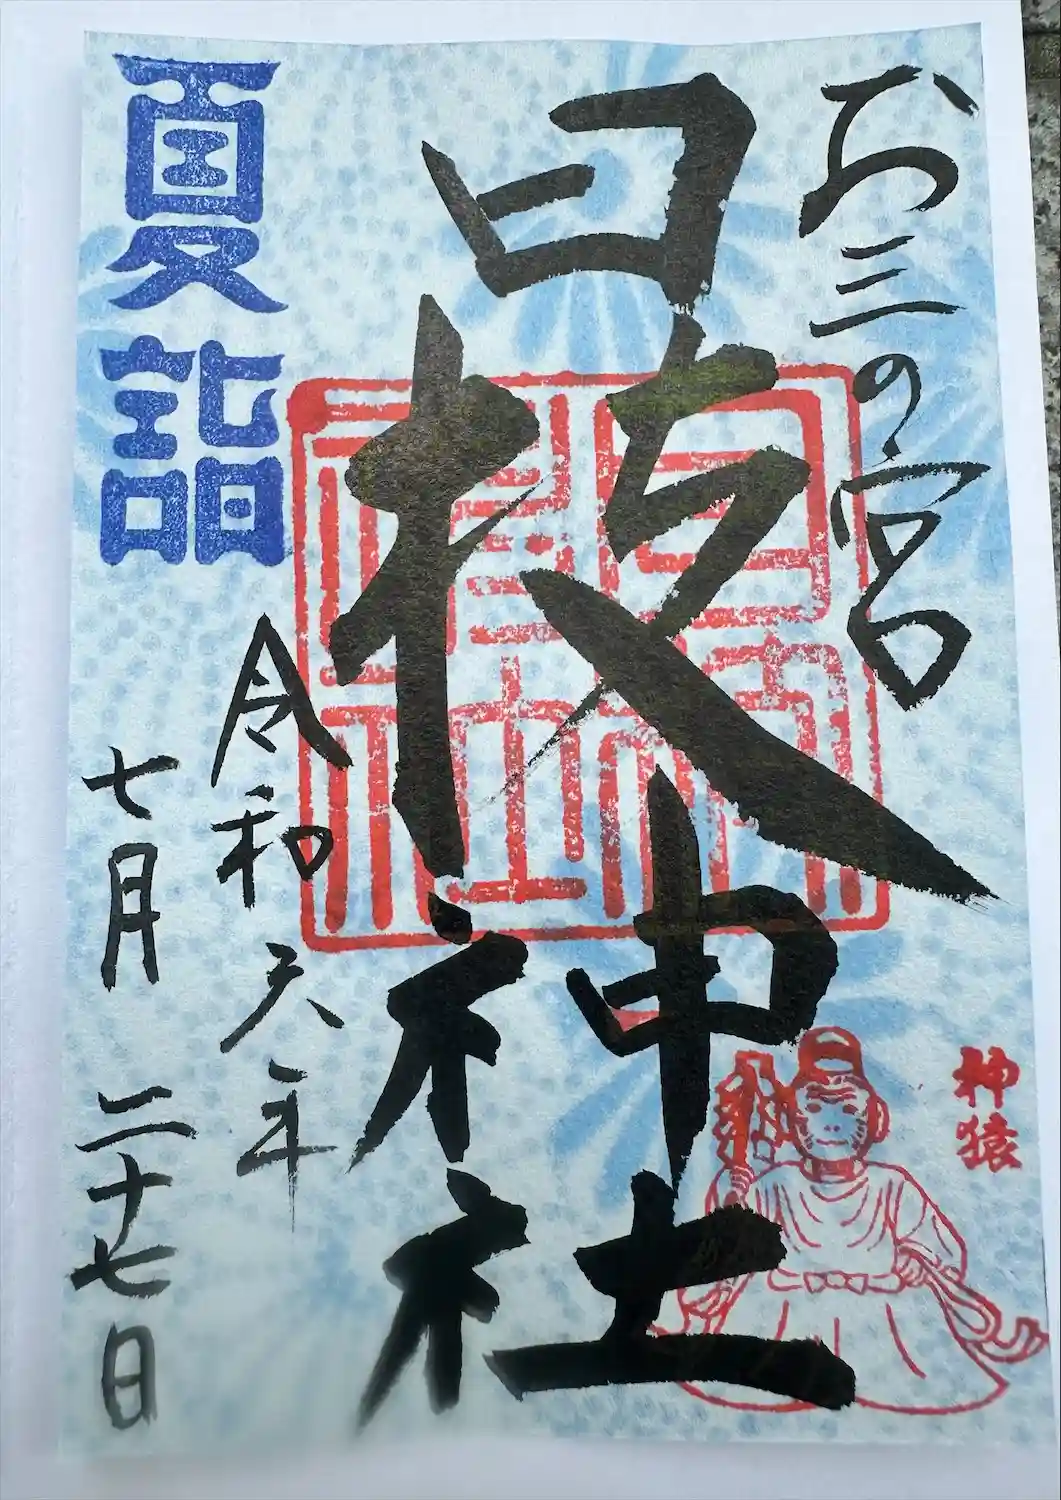 お三の宮
日枝神社
神猿
令和元年
七月二十七日
夏詣